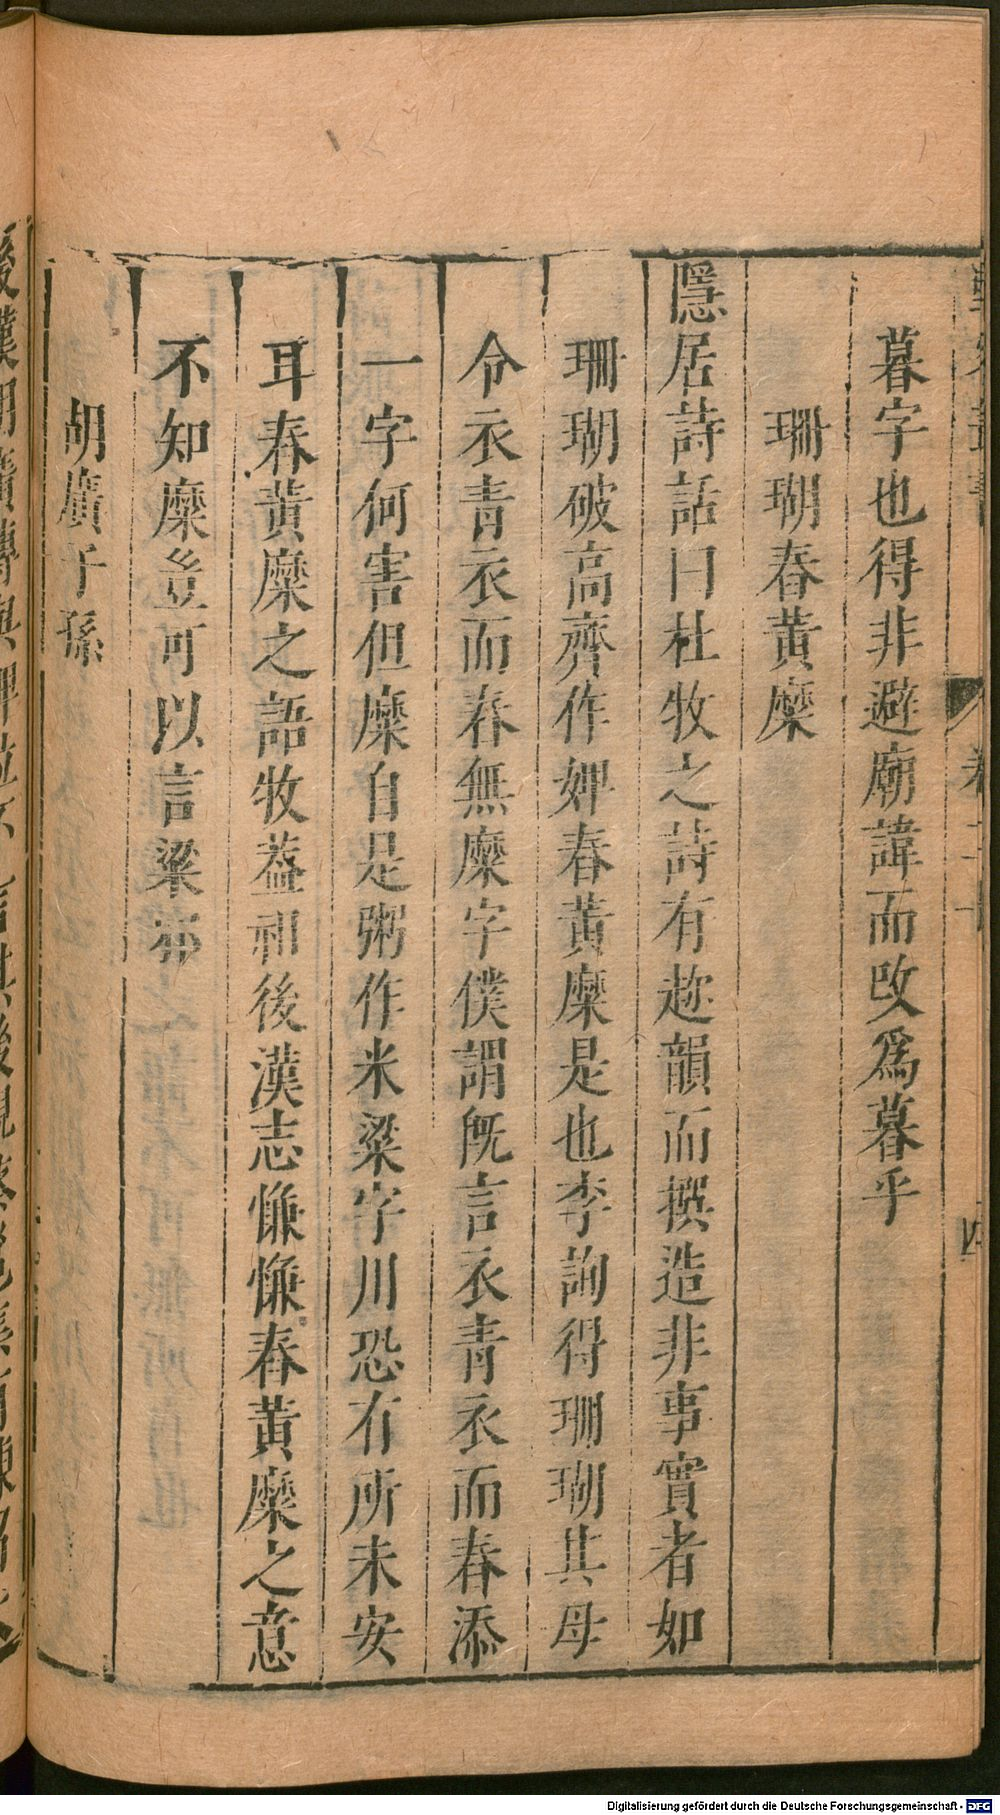 暮字也得非避廟諱而改爲暮乎
珊瑚舂黄糜
隱居詩話曰杜牧之詩有趂韻而撰造非事實者如
珊瑚破高齊作婢舂黄糜是也李詢得珊瑚其母
令衣青衣而舂無糜字僕謂既言衣青衣而舂添
一字何害但糜自是粥作米粱字川恐有所未安
耳舂黄糜之語牧葢祖後漢志慊慊舂黄糜之意
不知糜豈可以言粱
胡廣子孫
Digitalisierung gefördert durch die Deutsche Forschungsgemeinschaft - DFG